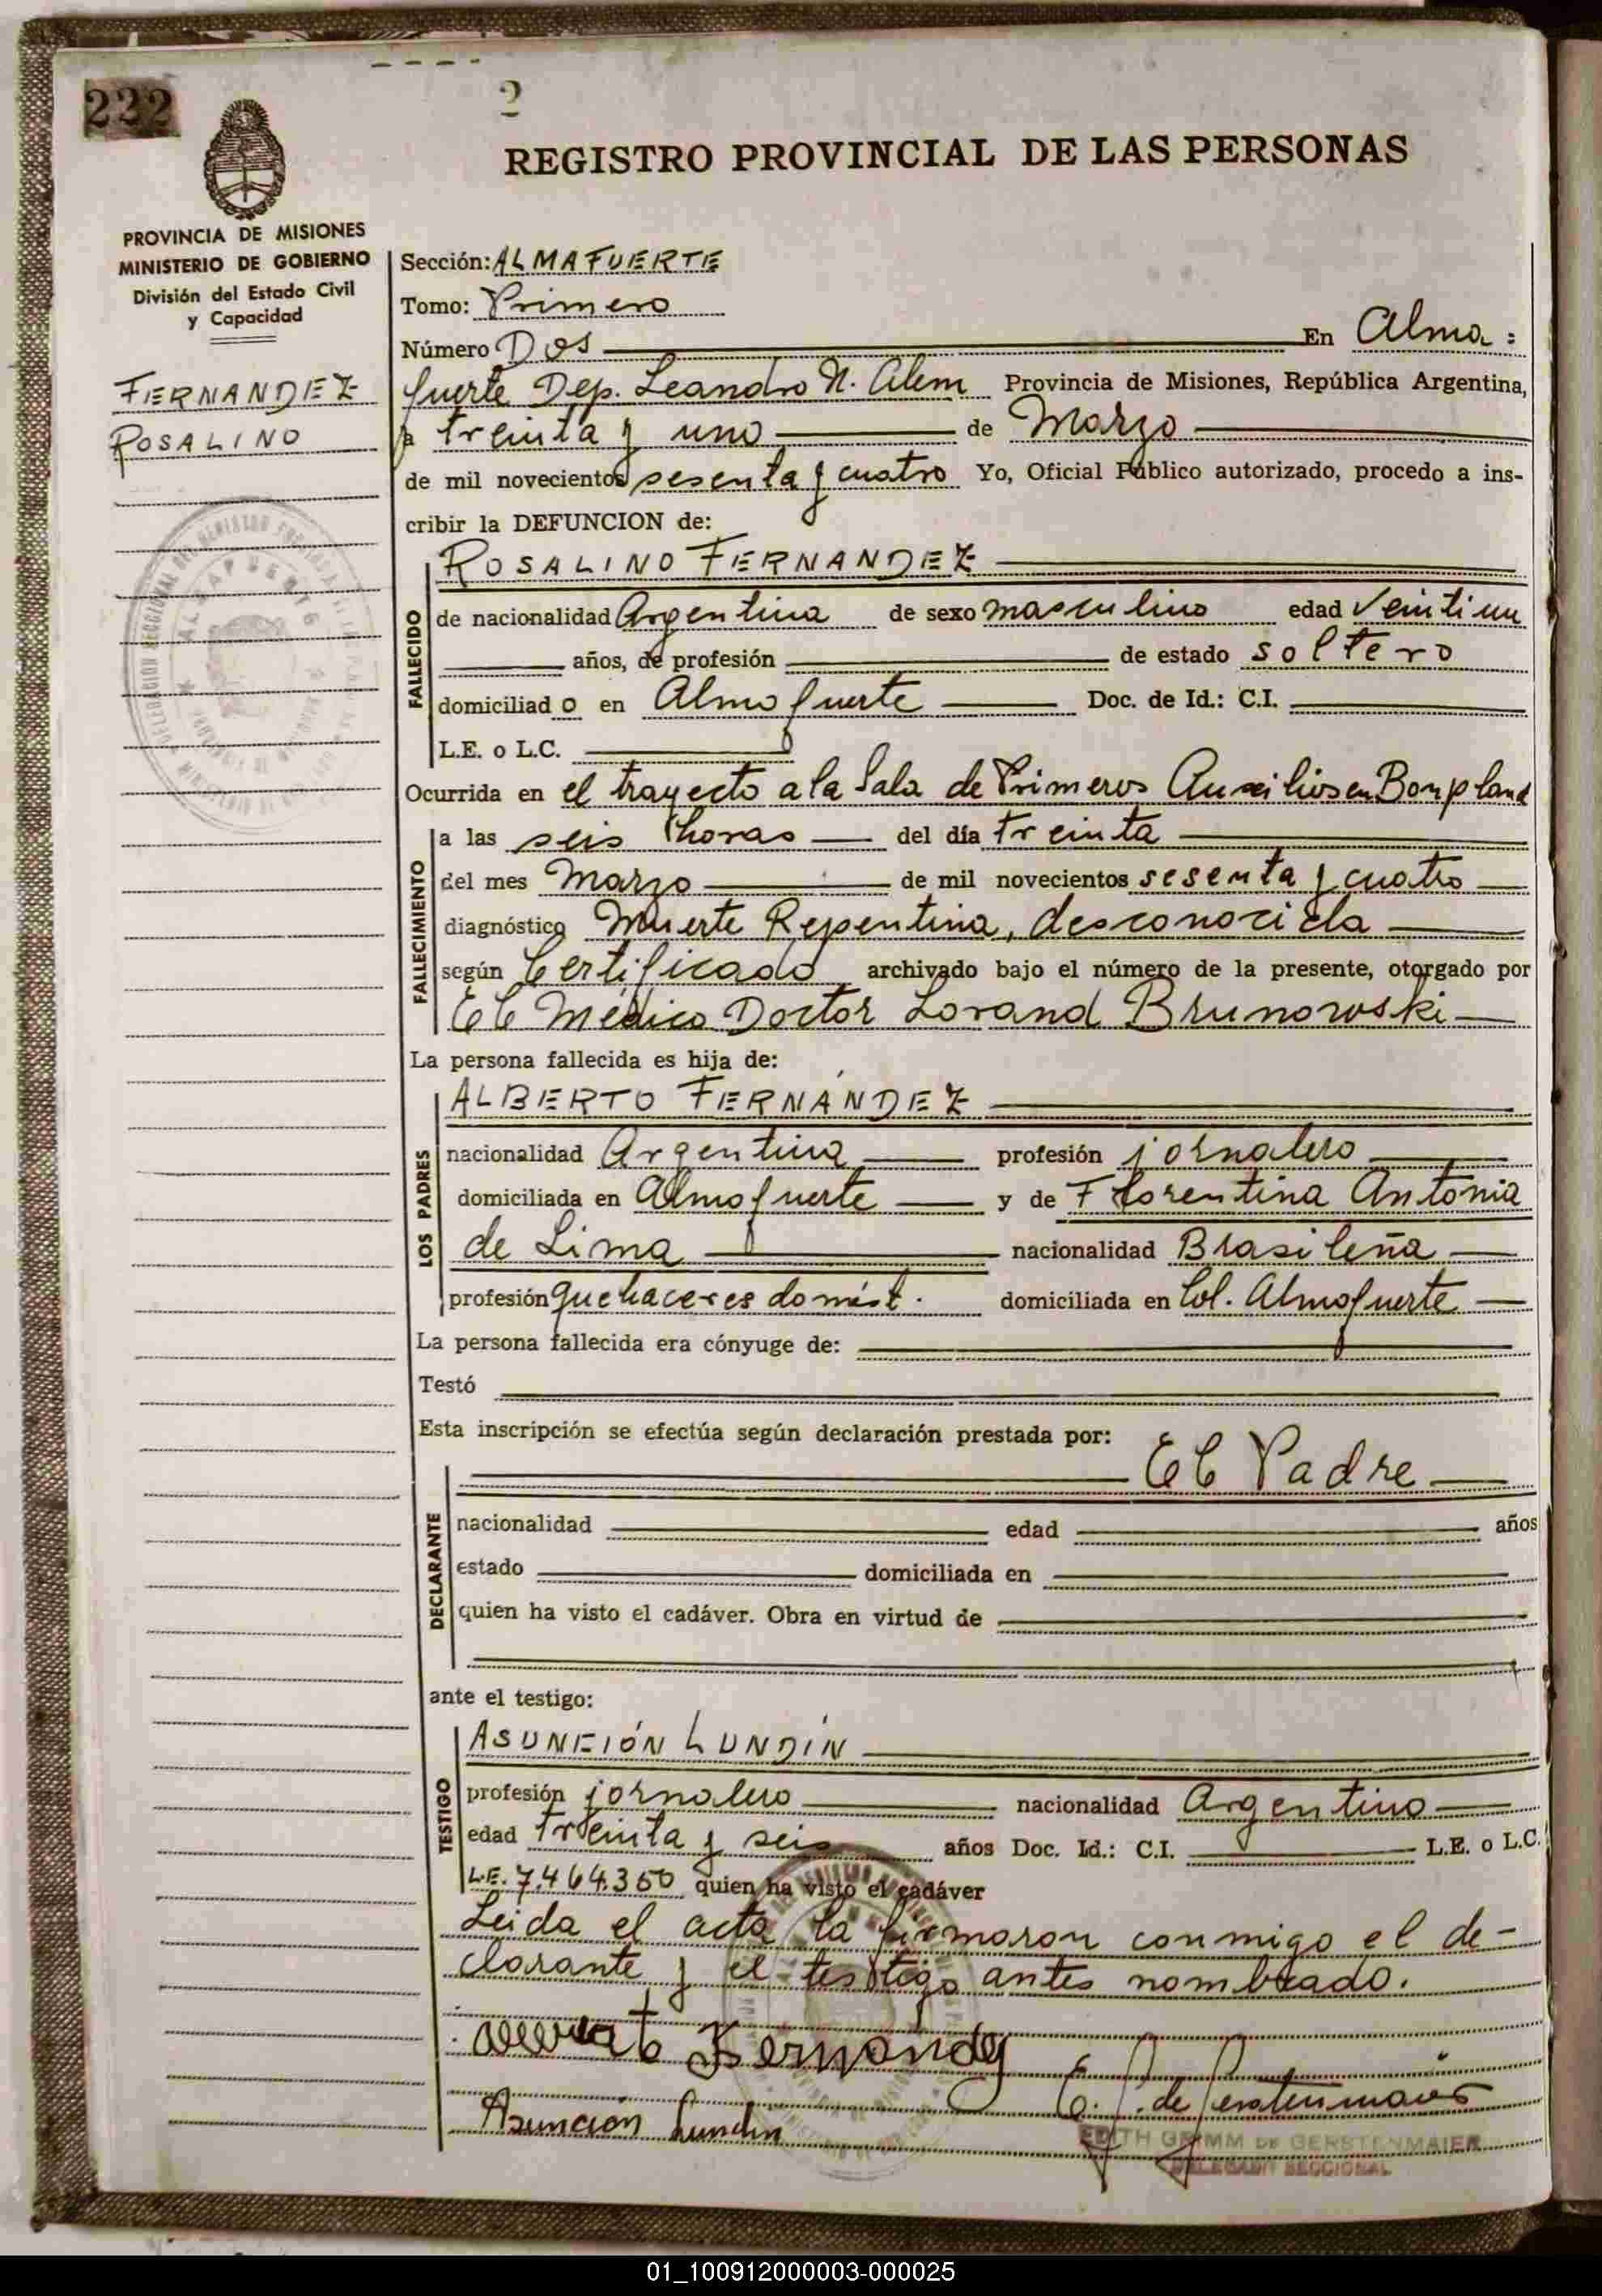 222
2
REGISTRO PROVINCIAL DE LAS PERSONAS
PROVINCIA DE MISIONES
MINISTERIO DE GOBIERNO
División del Estado Civil
y Capacidad
FERNANDEZ
ROSALINO
Sección: ALMAFUERTE
Tomo: Primero
Número Dos En Alma:
fuerte Dep. Leandro N. Alem Provincia de Misiones, República Argentina,
a treinta y uno de Marzo
de mil novecientos sesenta y cuatro Yo, Oficial Público autorizado, procedo a ins-
cribir la DEFUNCION de:
FALLECIDO
ROSALINO FERNANDEZ
de nacionalidad Argentina de sexo masculino edad Veintiun
años, de profesión de estado soltero
domiciliado en Almafuerte Doc. de Id.: C.I.
L.E. o L.C.
Ocurrida en el trayecto a la Sala de Primeros Auxilios en Bonpland
FALLECIMIENTO
a las seis horas del día treinta
del mes Marzo de mil novecientos sesenta y cuatro
diagnóstico Muerte Repentina, desconocida
según Certificado archivado bajo el número de la presente, otorgado por
El Médico Doctor Lorand Brunorvski
La persona fallecida es hija de:
LOS PADRES
ALBERTO FERNÁNDEZ
nacionalidad Argentina profesión jornalero
domiciliada en Almafuerte y de Florentina Antonia
de Lima nacionalidad Brasileña
profesión quehaceres domést. domiciliada en Col. Almafuerte
La persona fallecida era cónyuge de:
Testó
Esta inscripción se efectúa según declaración prestada por:
DECLARANTE
El Padre
nacionalidad edad años
estado domiciliada en
quien ha visto el cadáver. Obra en virtud de
ante el testigo:
TESTIGO
ASUNCIÓN LUNDÍN
profesión jornalero nacionalidad Argentino
edad treinta y seis años Doc. Id.: C.I. L.E. o L.C.
L.E. 7.464.350 quien ha visto el cadáver
Leida el acta la firmaron conmigo el de-
clarante y el testigo antes nombrado.
Fernandez
Asunción Lundin
EDITH GRIMM DE GERSTENMAIER
DELEGADO SECCIONAL
01_100912000003-000025